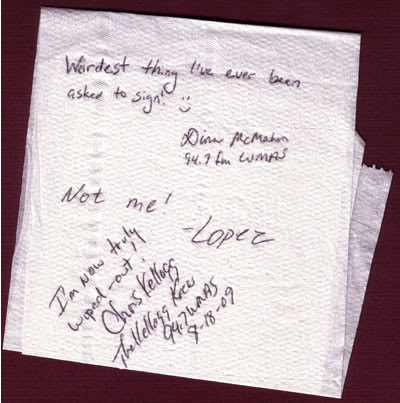 Weirdest thing I've ever been
asked to sign! :)
Dina McMahon
94.7 fm WMAS
Not me!
-Lopez
I'm now truly
wiped-out!!
Chris Kellogg
The Kellogg Krew
94.7 WMAS
9-18-09